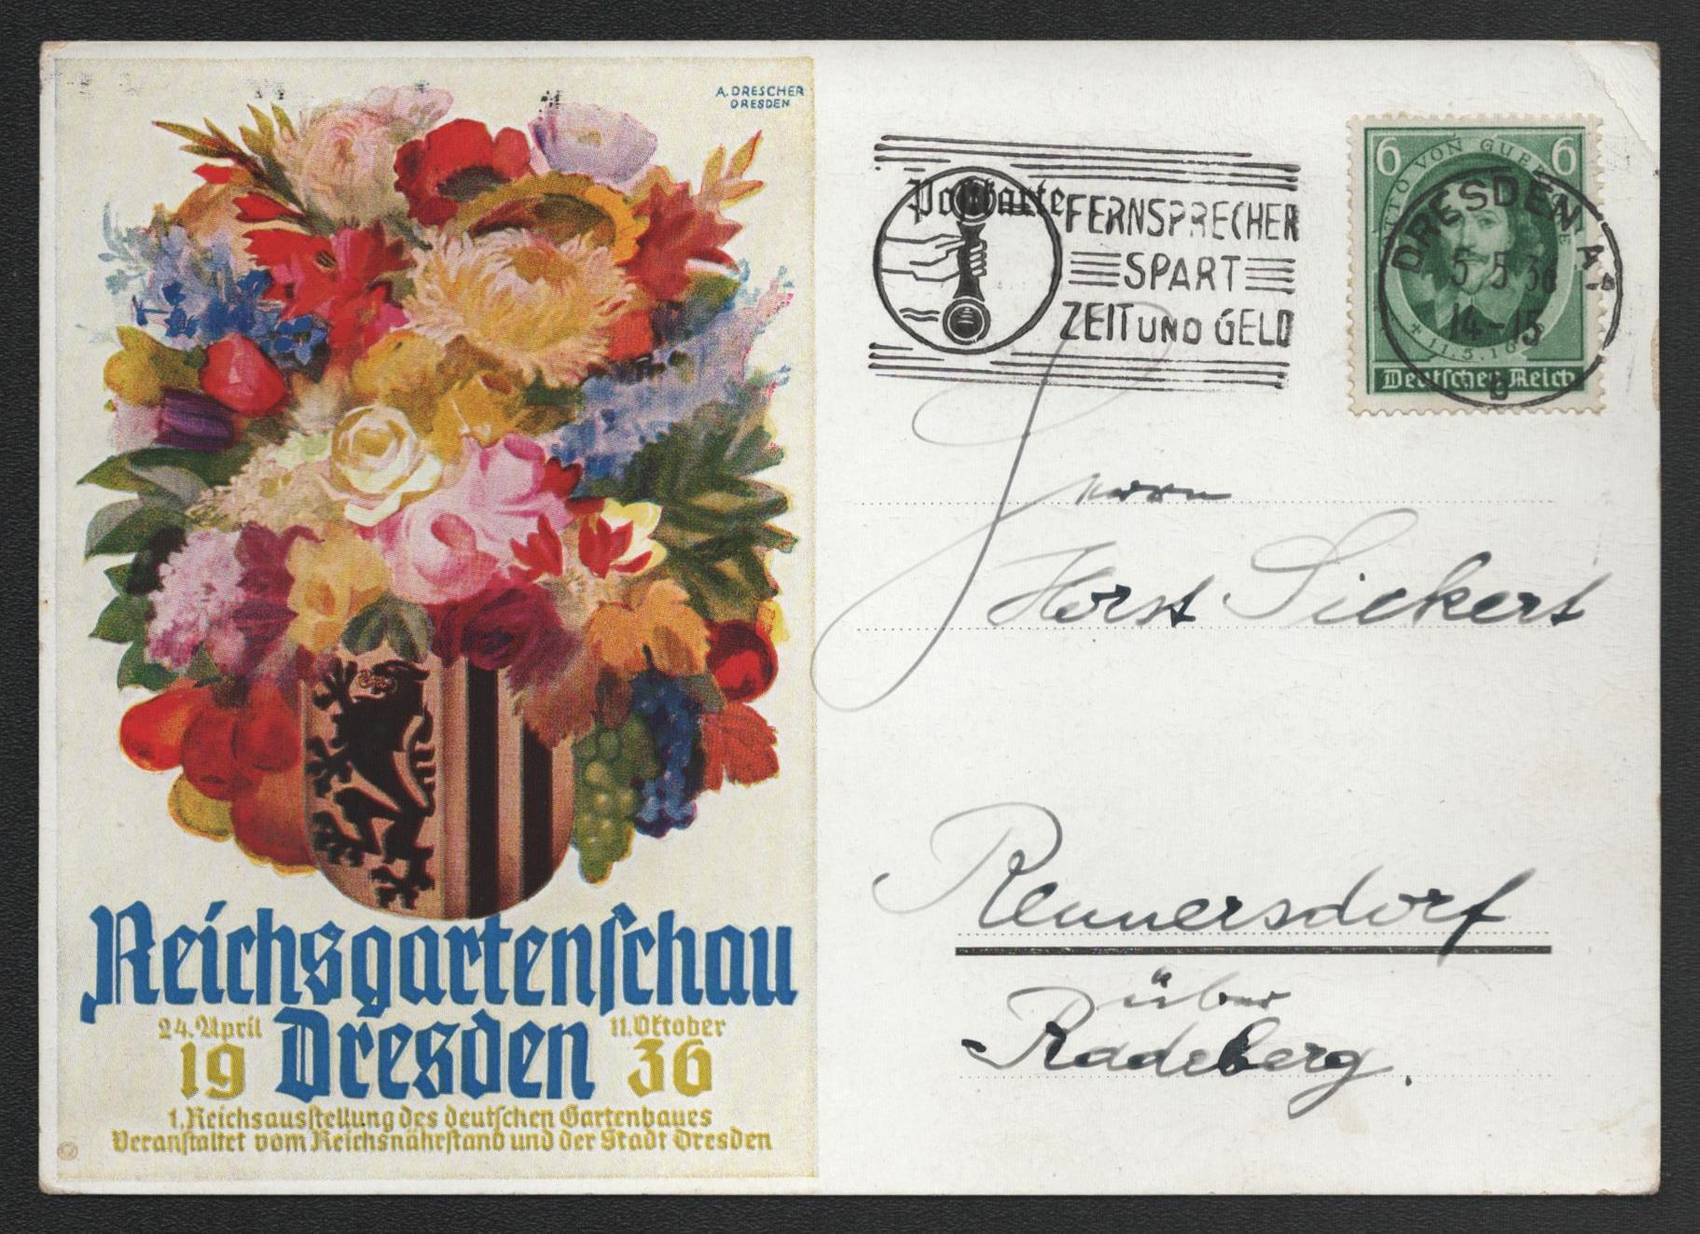 A. DRESCHER
DRESDEN
Reichsgartenschau
24. April
11. Oktober
19 Dresden 36
1. Reichsausstellung des deutschen Gartenbaues
Veranstaltet vom Reichsnährstand und der Stadt Dresden
Postkarte
FERNSPRECHER
SPART
ZEIT UND GELD
6 6
OTTO VON GUERICKE
+ 11.5.1686
Deutsches Reich
DRESDEN A
5.5.36
14-15
Herrn
Horst Sickert
Rennersdorf
über
Radeberg.